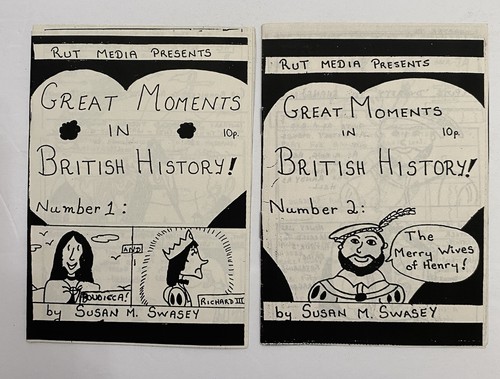 RUT MEDIA PRESENTS
GREAT MOMENTS
IN
10p.
BRITISH HISTORY!
Number 1:
AND
BOUDICCA!
RICHARD III
by SUSAN M. SWASEY
RUT MEDIA PRESENTS
GREAT MOMENTS
IN
10p.
BRITISH HISTORY!
Number 2:
The
Merry Wives
of Henry!
by SUSAN M. SWASEY